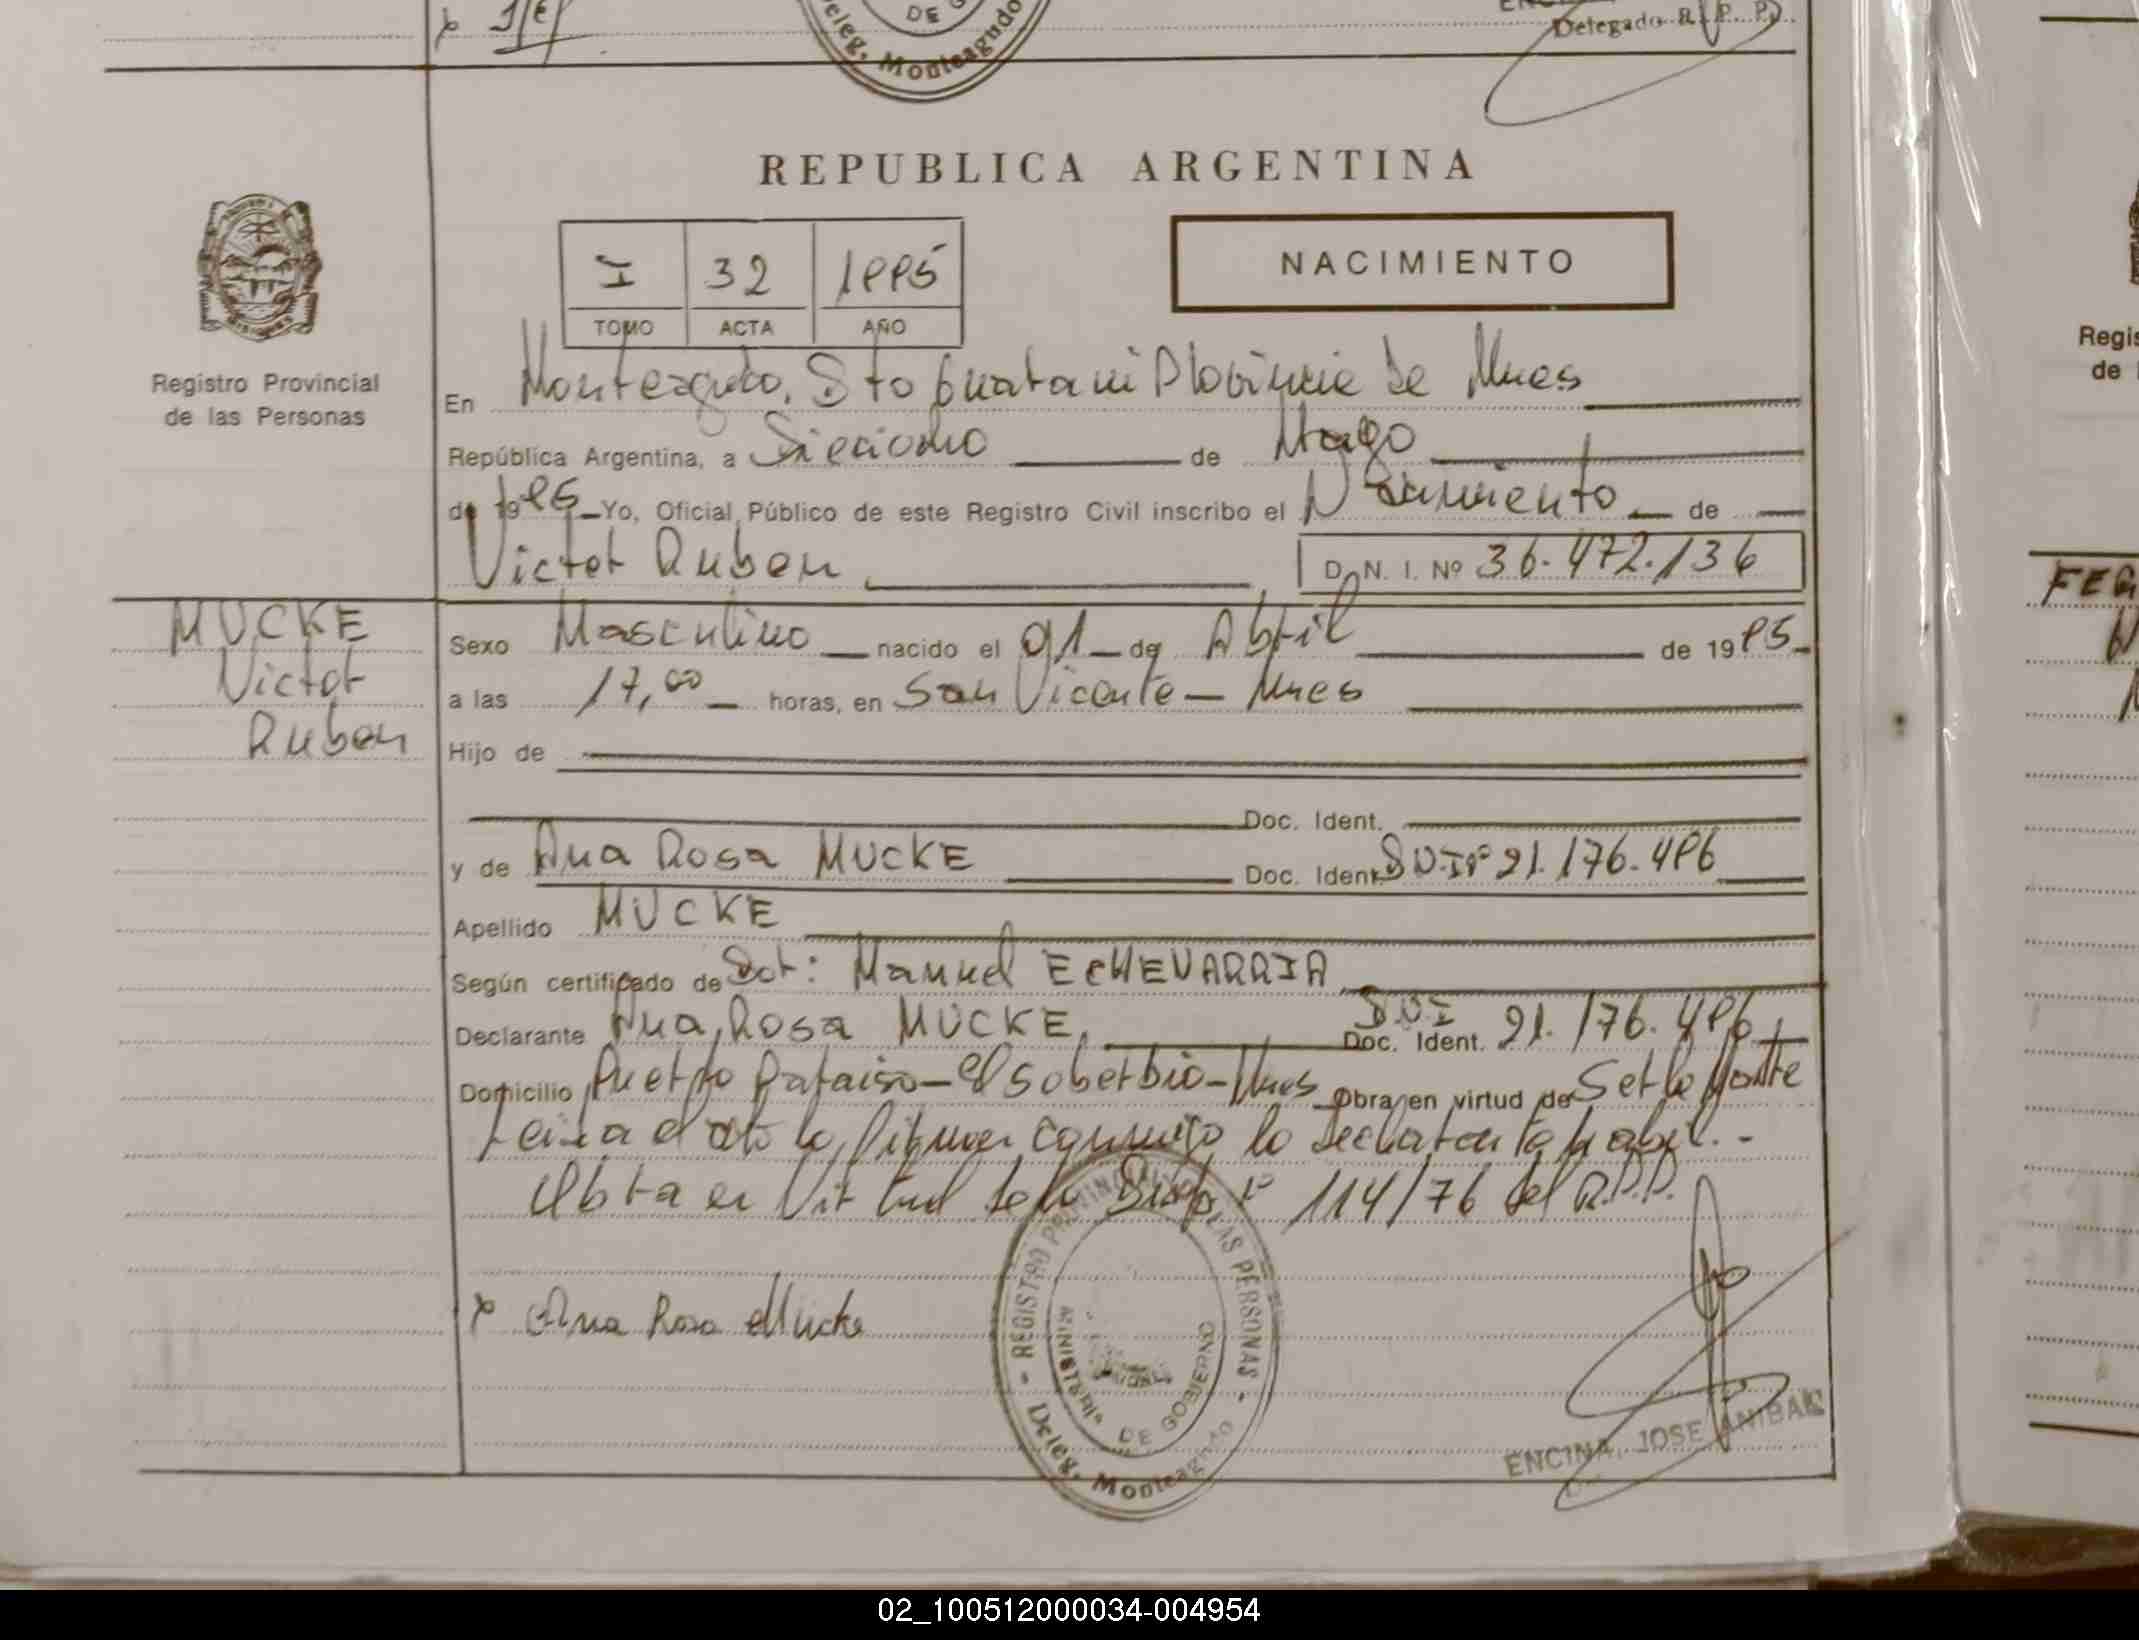 DE G
Deleg. Monteagudo
Delegado R. P. P.
REPUBLICA ARGENTINA
I 32 1995
TOMO ACTA AÑO
NACIMIENTO
Registro Provincial
de las Personas
En Monteagudo, Dto Guarani Provincia de Mnes
República Argentina, a Dieciocho de Mayo
de 1995 Yo, Oficial Público de este Registro Civil inscribo el Nacimiento de
Victor Ruben D. N. I. Nº 36.472.136
MUCKE
Victor
Ruben
Sexo Masculino nacido el 01 de Abril de 1995
a las 17,00 horas, en San Vicente - Mnes
Hijo de
Doc. Ident.
y de Ana Rosa MUCKE Doc. Ident. D.N.I Nº 21.176.496
Apellido MUCKE
Según certificado de Dot: Manuel ECHEVARRIA
Declarante Ana Rosa MUCKE, Doc. Ident. D.N.I 21.176.496
Domicilio Puerto Paraiso - El Soberbio - Mnes Obra en virtud de Ser la
lo
Obra en Virtud de la Disp Nº 114/76 del R.P.P.
x Ana Rosa Mucke
REGISTRO PROVINCIAL DE LAS PERSONAS
MINISTERIO DE GOBIERNO
Deleg. Monteagudo
ENCINA, JOSE ANIBAL
Regis
de
FEG
02_100512000034-004954